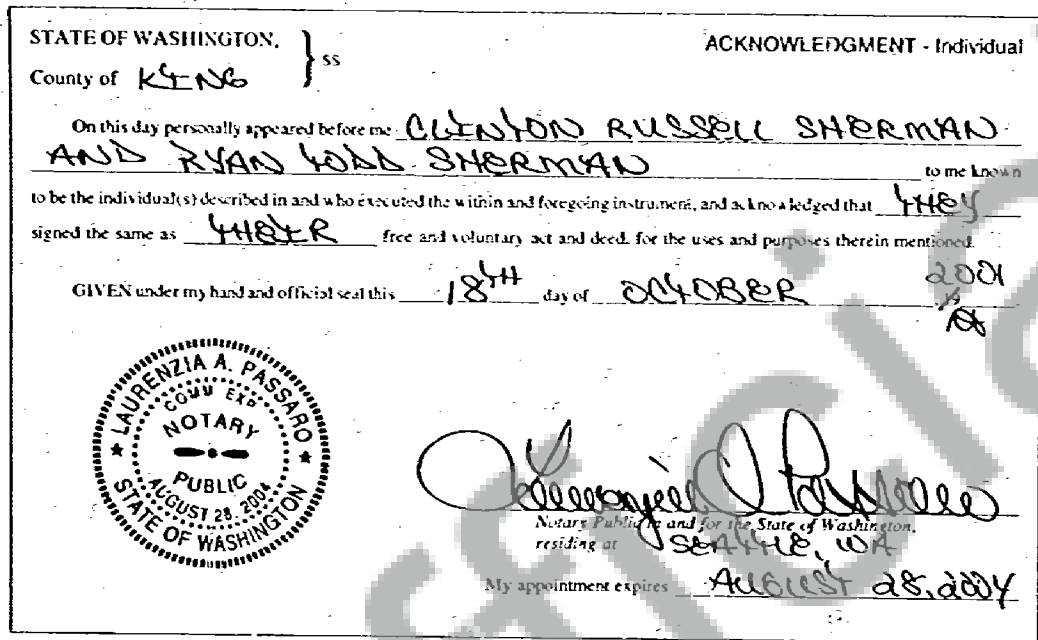 STATE OF WASHINGTON, } ss ACKNOWLEDGMENT - Individual
County of KING
On this day personally appeared before me CLINTON RUSSELL SHERMAN
AND RYAN TODD SHERMAN to me known
to be the individual(s) described in and who executed the within and foregoing instrument, and acknowledged that THEY
signed the same as THEIR free and voluntary act and deed, for the uses and purposes therein mentioned.
GIVEN under my hand and official seal this 18TH day of OCTOBER 2001
LAURENZIA A. PASSARO
COMM EXP
NOTARY
PUBLIC
AUGUST 28, 2004
STATE OF WASHINGTON
Notary Public in and for the State of Washington,
residing at SEATTLE, WA
My appointment expires AUGUST 28, 2004